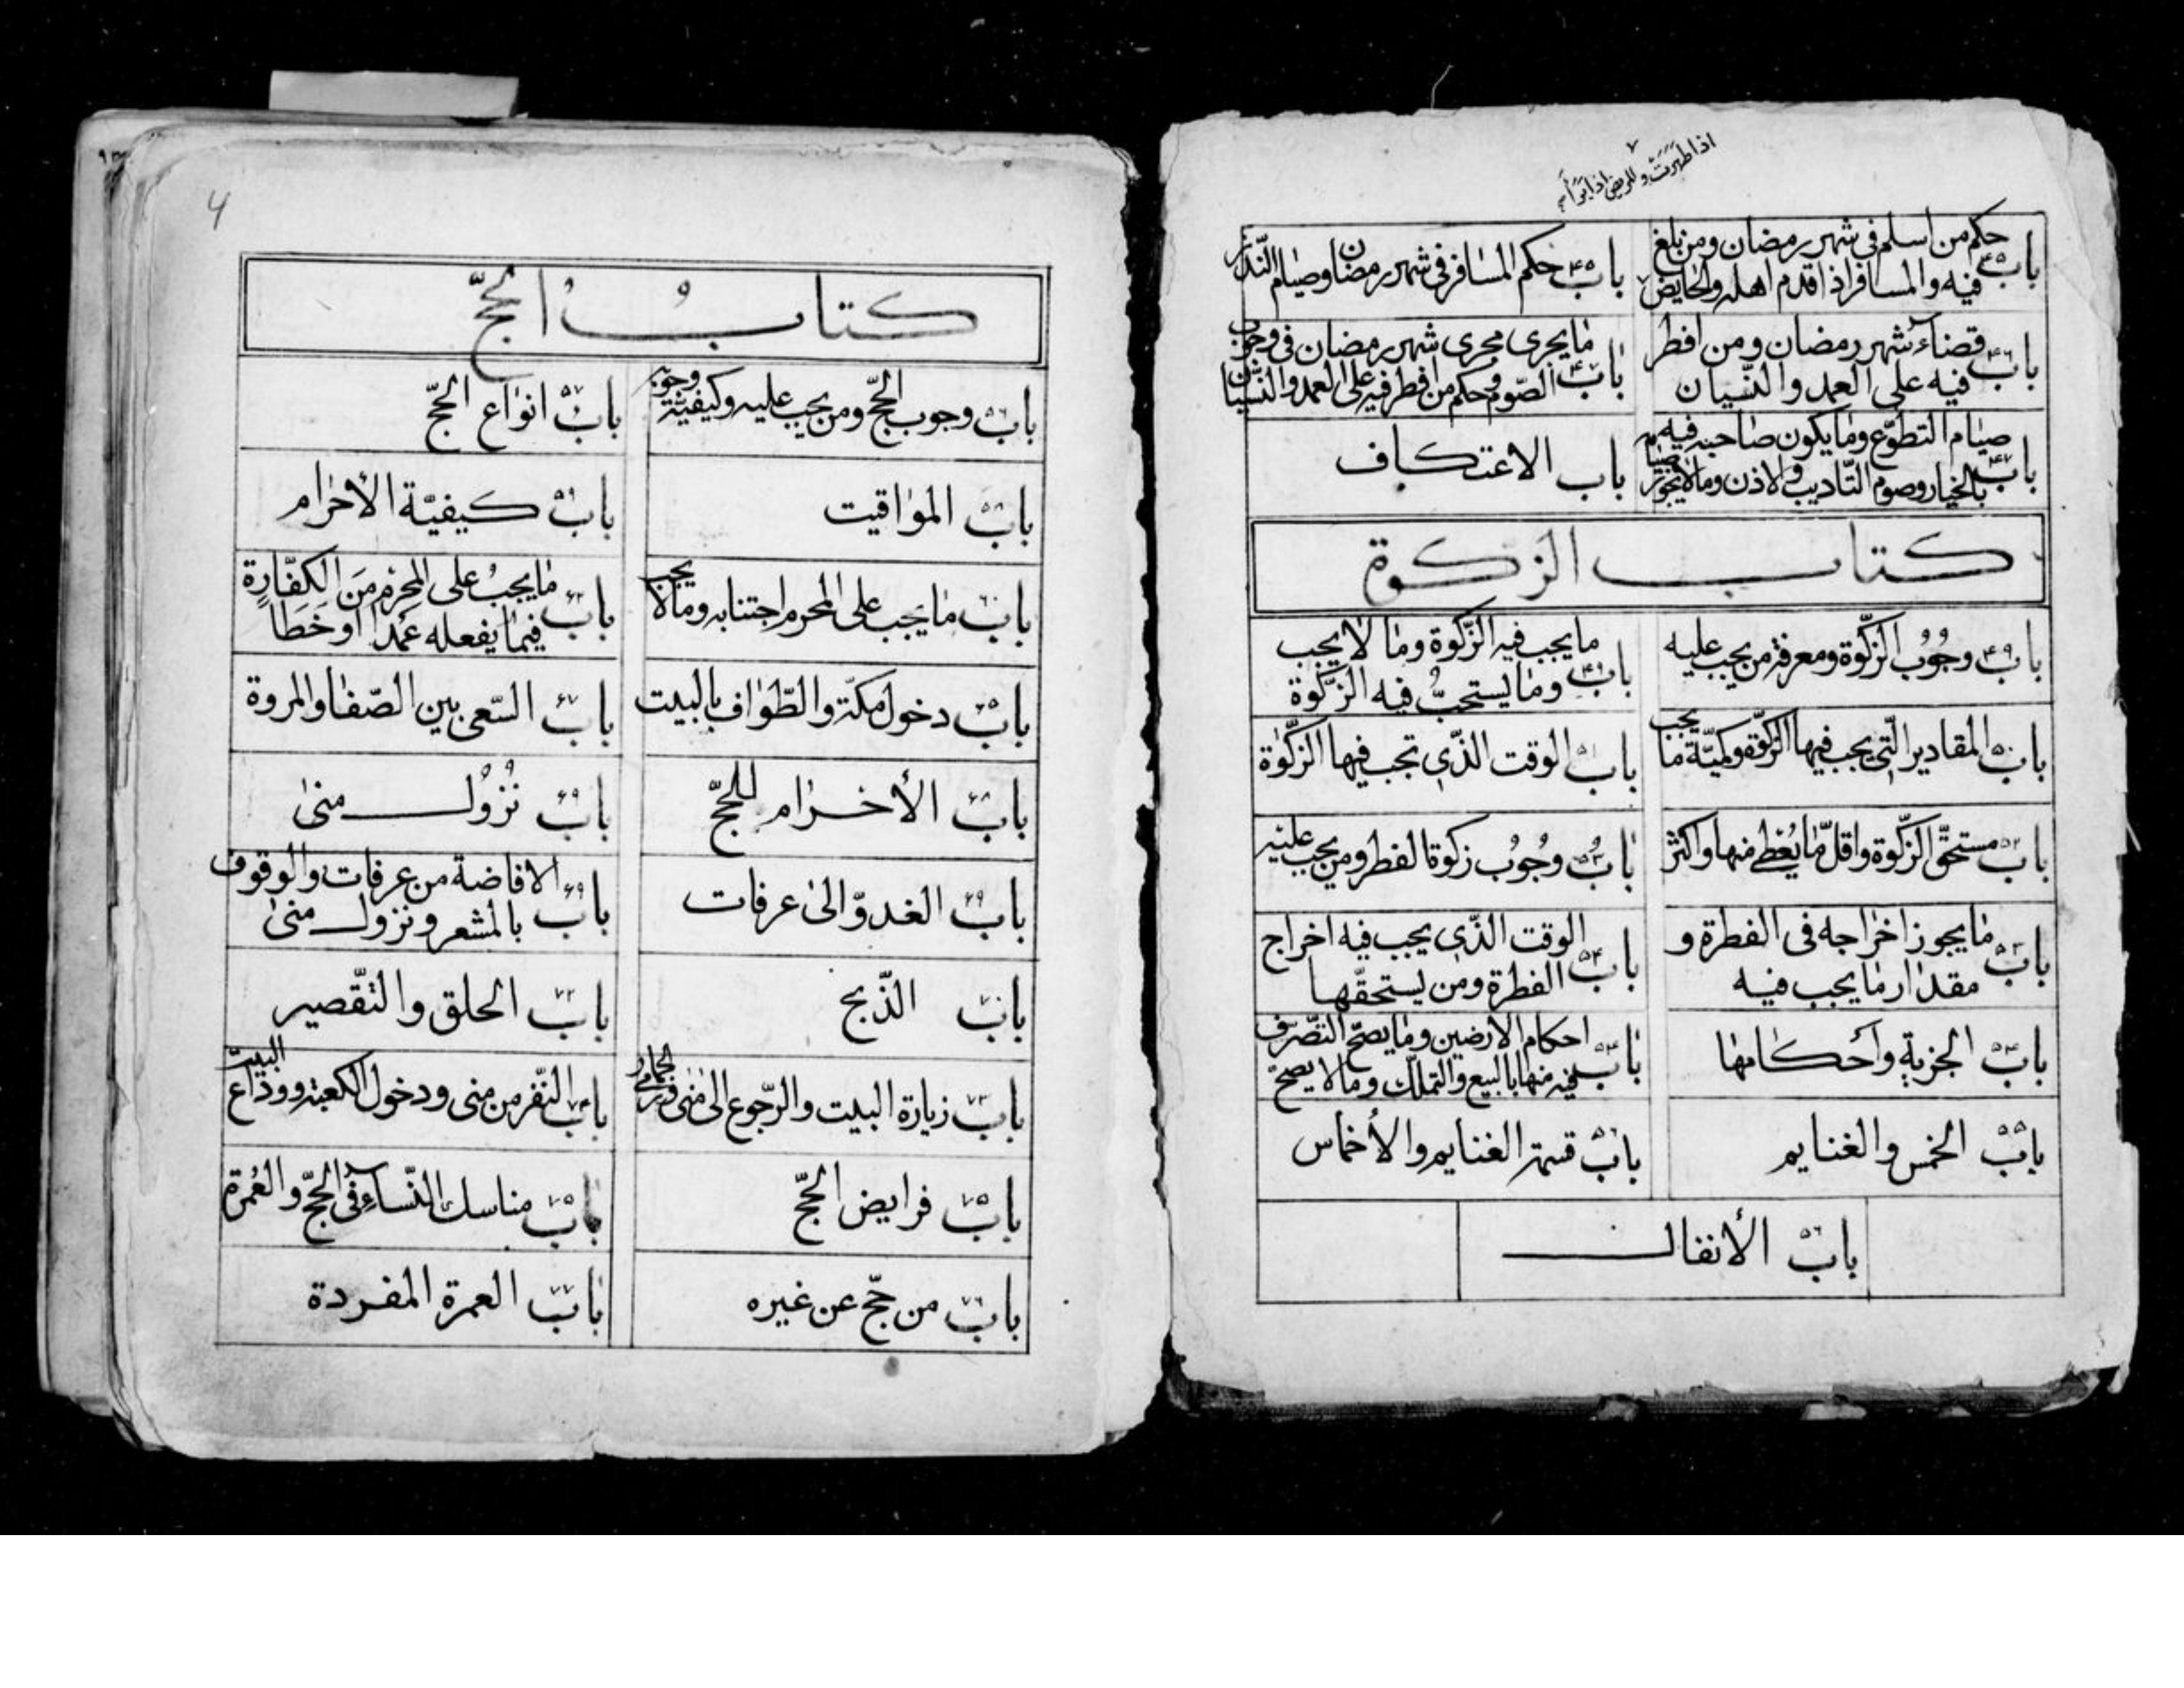 اذا طهرت و المريض اذا برأ
باب حكم من اسلم فى شهر رمضان ومن بلغ
فيه والمسافر اذا قدم اهله والحايض
باب حكم المسافر فى شهر رمضان وصيام النذر
باب قضاء شهر رمضان ومن افطر
فيه على العمد والنّسيان
باب ما يجرى مجرى شهر رمضان فى وجوب
الصّوم وحكم من افطر فيه على العمد والنّسيان
باب صيام التطوّع وما يكون صاحبه فيه
بالخيار وصوم التّاديب والاذن وما لا يجوز صيامه
باب الاعتكاف
كتاب الزكوة
باب ۴۹ وجُوُب الزكّوة ومعرفة من يجب عليه
باب ما يجب فيه الزّكوة وما لا يجب
وما يستحبُّ فيه الزكّوة
باب ۵۰ المقادير التّى يجب فيها الزكّوة وكميّة ما يجب
باب ۵۱ الوقت الذّى تجب فيها الزكّوة
باب ۵۲ مستحقّ الزكّوة واقلّ ما يُعطى منها واكثر
باب وجُوُب زكوة الفطر ومن يجب عليه
باب ما يجوز اخراجه فى الفطرة و
مقدار ما يجب فيه
باب الوقت الذّى يجب فيه اخراج
الفطرة ومن يستحقّها
باب الجزية وأحكامها
باب احكام الارضين وما يصحّ التصّرف
فيه منها بالبيع والتملّك وما لا يصحّ
باب ۵۵ الخمس والغنايم
باب قسمة الغنايم والأخماس
باب الأنفال
4
كتابُ الحجّ
باب ۵۶ وجوب الحجّ ومن يجب عليه وكيفيّة وجوبه
باب ۵۷ انواع الحجّ
باب ۵۸ المواقيت
باب ۵۹ كيفيّة الأحرام
باب ۶۰ ما يجب على المحرم اجتنابه وما لا يجب
باب ما يجبُ على المحرم مَن الكفّارةِ
فيما يفعله عمَداً او خَطأ
باب دخول مكّة والطّواف بالبيت
باب السّعى بين الصّفا والمروة
باب الأحرام للحجّ
باب ۶۹ نُزوُل منى
باب ۶۹ الغدوّ الى عرفات
باب ۶۹ الافاضة من عرفات والوقوف
بالمشعر ونزول منى
باب ۷۰ الذّبح
باب ۷۲ الحلق والتّقصير
باب ۷۳ زيارة البيت والرّجوع الى منى ورمى الجمار
باب ۷۴ النّفر من منى ودخول الكعبة ووداع البيت
باب ۷۵ فرايض الحجّ
باب ۷۵ مناسك النّساء فى الحجّ والعُمرة
باب ۷۶ من حجّ عن غيره
باب ۷۷ العمرة المفردة